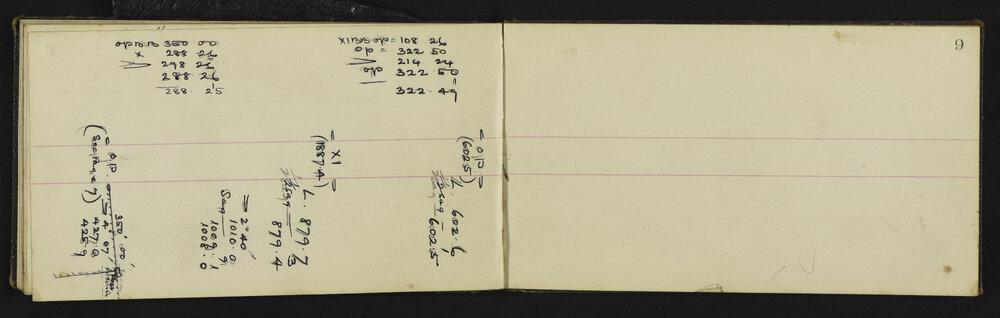 op B.B 350 00
x 288 26
298 26
288 26
288. 25
XI B.B op = 108 26
op = 322 50
214. 24
op 322 50
=
322. 49
9
= O.P. =
(602.5)
L. 602.6
Sag
602.5
= XI =
(1887.4)
L. 879.7
Sag 3
879.4
= 2° 40'
1010.0
Sag 9
1009.1
1008.0
= O.P.
(See Page 7)
350° 00'
= 4° 07'
427.0
425.9